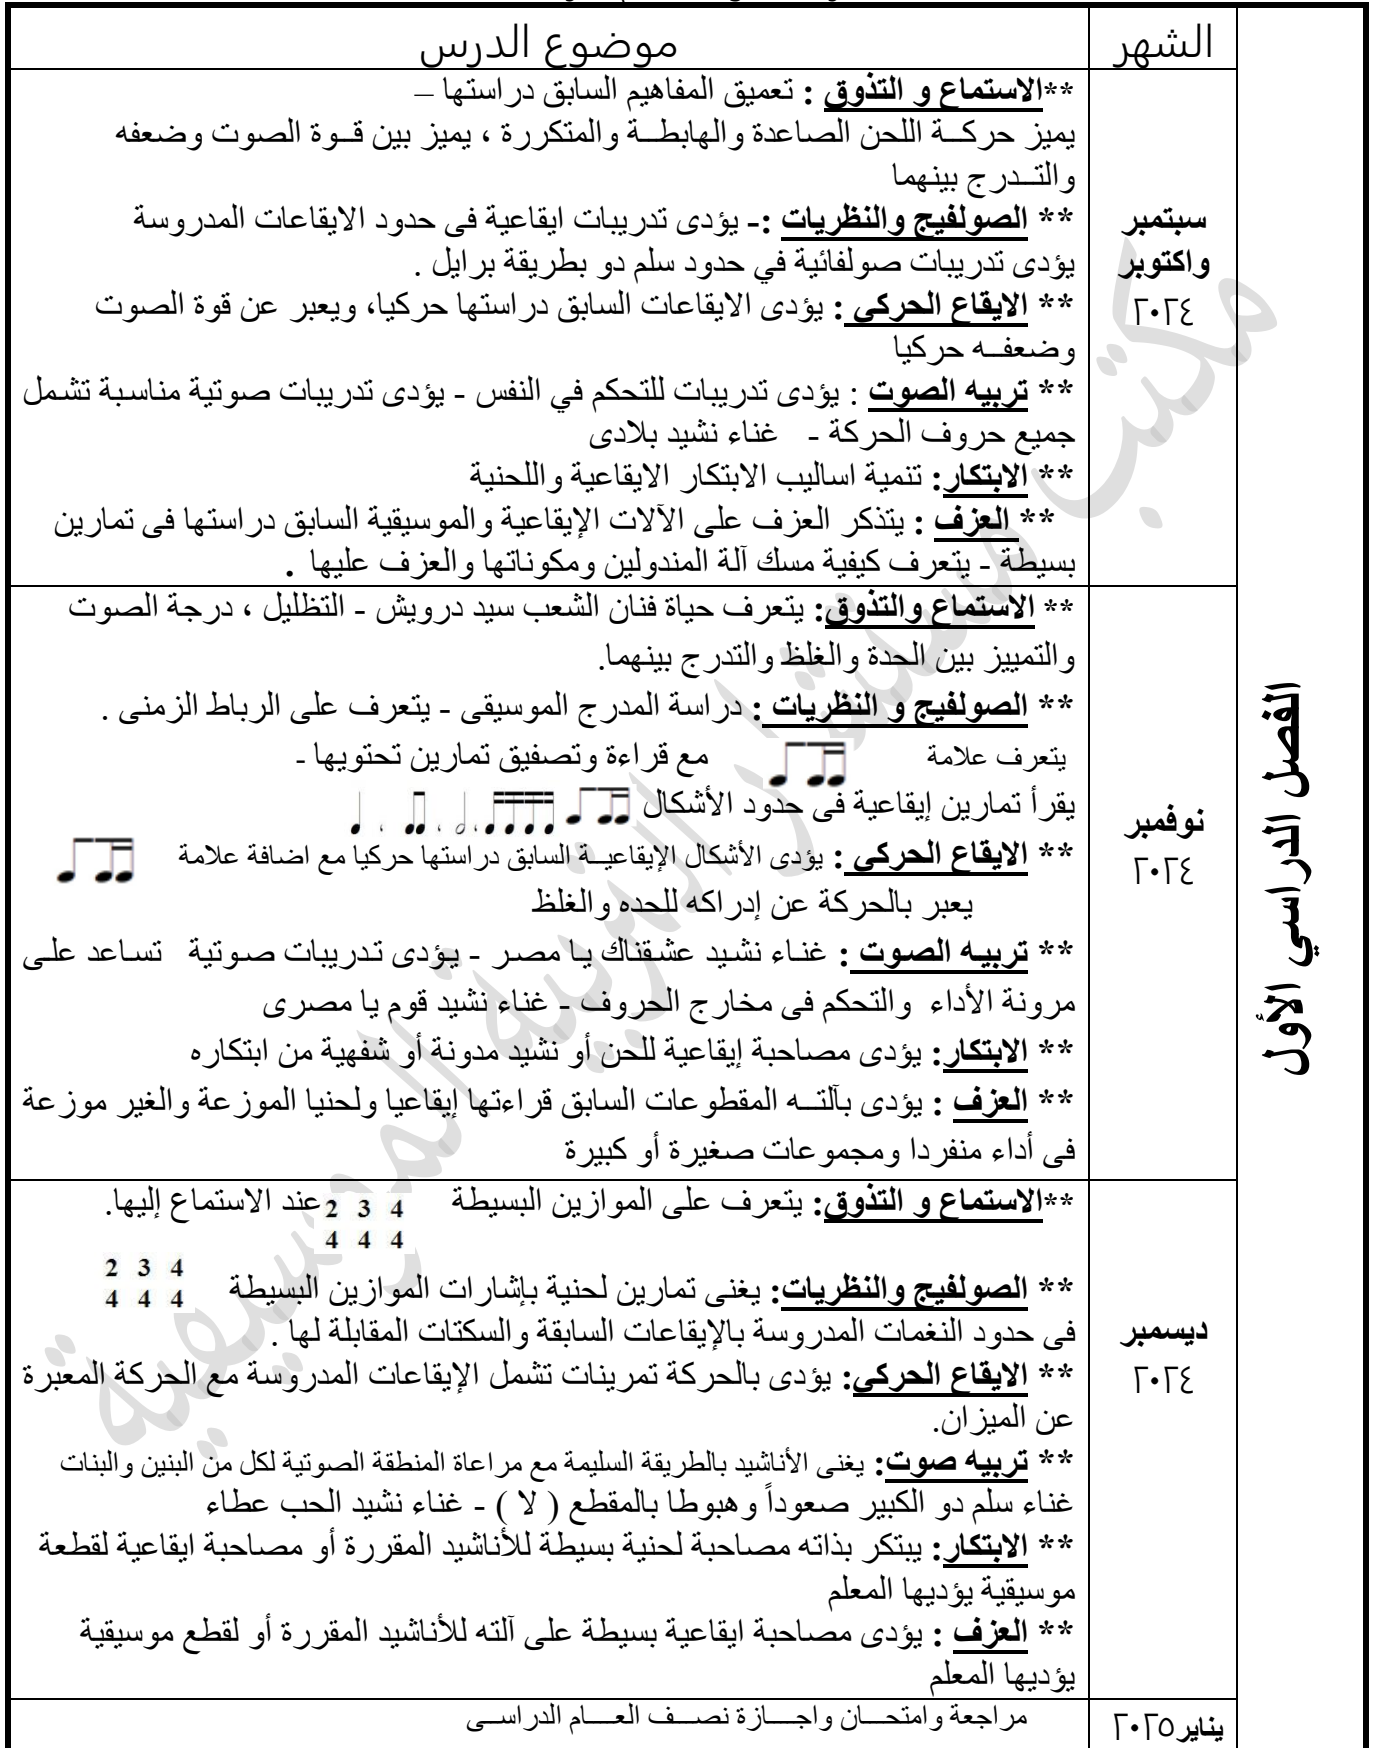 الشهر
موضوع الدرس
الفصل الدراسي الأول
سبتمبر
واكتوبر
٢٠٢٤
**الاستماع و التذوق : تعميق المفاهيم السابق دراستها –
يميز حركــة اللحن الصاعدة والهابطــة والمتكررة ، يميز بين قــوة الصوت وضعفه
والتــدرج بينهما
** الصولفيج والنظريات :- يؤدى تدريبات ايقاعية فى حدود الايقاعات المدروسة
يؤدى تدريبات صولفائية في حدود سلم دو بطريقة برايل .
** الايقاع الحركي : يؤدى الايقاعات السابق دراستها حركيا، ويعبر عن قوة الصوت
وضعفــه حركيا
** تربيه الصوت : يؤدى تدريبات للتحكم في النفس - يؤدى تدريبات صوتية مناسبة تشمل
جميع حروف الحركة - غناء نشيد بلادى
** الابتكار: تنمية اساليب الابتكار الايقاعية واللحنية
** العزف : يتذكر العزف على الآلات الإيقاعية والموسيقية السابق دراستها فى تمارين
بسيطة - يتعرف كيفية مسك آلة المندولين ومكوناتها والعزف عليها .
نوفمبر
٢٠٢٤
** الاستماع والتذوق: يتعرف حياة فنان الشعب سيد درويش - التظليل ، درجة الصوت
والتمييز بين الحدة والغلظ والتدرج بينهما.
** الصولفيج و النظريات : دراسة المدرج الموسيقى - يتعرف على الرباط الزمنى .
يتعرف علامة مع قراءة وتصفيق تمارين تحتويها -
يقرأ تمارين إيقاعية فى حدود الأشكال
** الايقاع الحركي : يؤدى الأشكال الإيقاعيــة السابق دراستها حركيا مع اضافة علامة
يعبر بالحركة عن إدراكه للحده والغلظ
** تربيه الصوت : غناء نشيد عشقناك يا مصر - يؤدى تدريبات صوتية تساعد على
مرونة الأداء والتحكم فى مخارج الحروف - غناء نشيد قوم يا مصرى
** الابتكار: يؤدى مصاحبة إيقاعية للحن أو نشيد مدونة أو شفهية من ابتكاره
** العزف : يؤدى بآلتــه المقطوعات السابق قراءتها إيقاعيا ولحنيا الموزعة والغير موزعة
فى أداء منفردا ومجموعات صغيرة أو كبيرة
ديسمبر
٢٠٢٤
**الاستماع و التذوق: يتعرف على الموازين البسيطة 2 3 4 عند الاستماع إليها.
4 4 4
2 3 4
** الصولفيج والنظريات: يغنى تمارين لحنية بإشارات الموازين البسيطة 4 4 4
فى حدود النغمات المدروسة بالإيقاعات السابقة والسكتات المقابلة لها .
** الايقاع الحركي: يؤدى بالحركة تمرينات تشمل الإيقاعات المدروسة مع الحركة المعبرة
عن الميزان.
** تربيه صوت: يغنى الأناشيد بالطريقة السليمة مع مراعاة المنطقة الصوتية لكل من البنين والبنات
غناء سلم دو الكبير صعوداً وهبوطا بالمقطع ( لا ) - غناء نشيد الحب عطاء
** الابتكار: يبتكر بذاته مصاحبة لحنية بسيطة للأناشيد المقررة أو مصاحبة ايقاعية لقطعة
موسيقية يؤديها المعلم
** العزف : يؤدى مصاحبة ايقاعية بسيطة على آلته للأناشيد المقررة أو لقطع موسيقية
يؤديها المعلم
يناير٢٠٢٥
مراجعة وامتحــان واجــازة نصــف العــام الدراســى
مكتب مستشار التربية الموسيقية